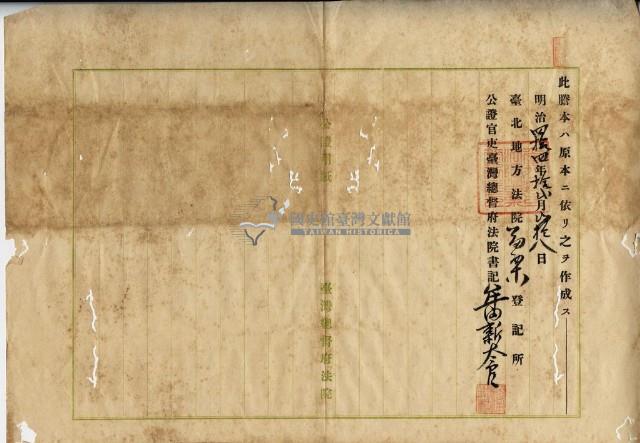 此謄本ハ原本ニ依リ之ヲ作成ス
明治四拾四年拾弐月 拾八日
臺北地方法院 登記所
公證官吏臺灣總督府法院書記 新太郎
公證用紙
臺灣總督府法院
國史館臺灣文獻館
TAIWAN HISTORICA